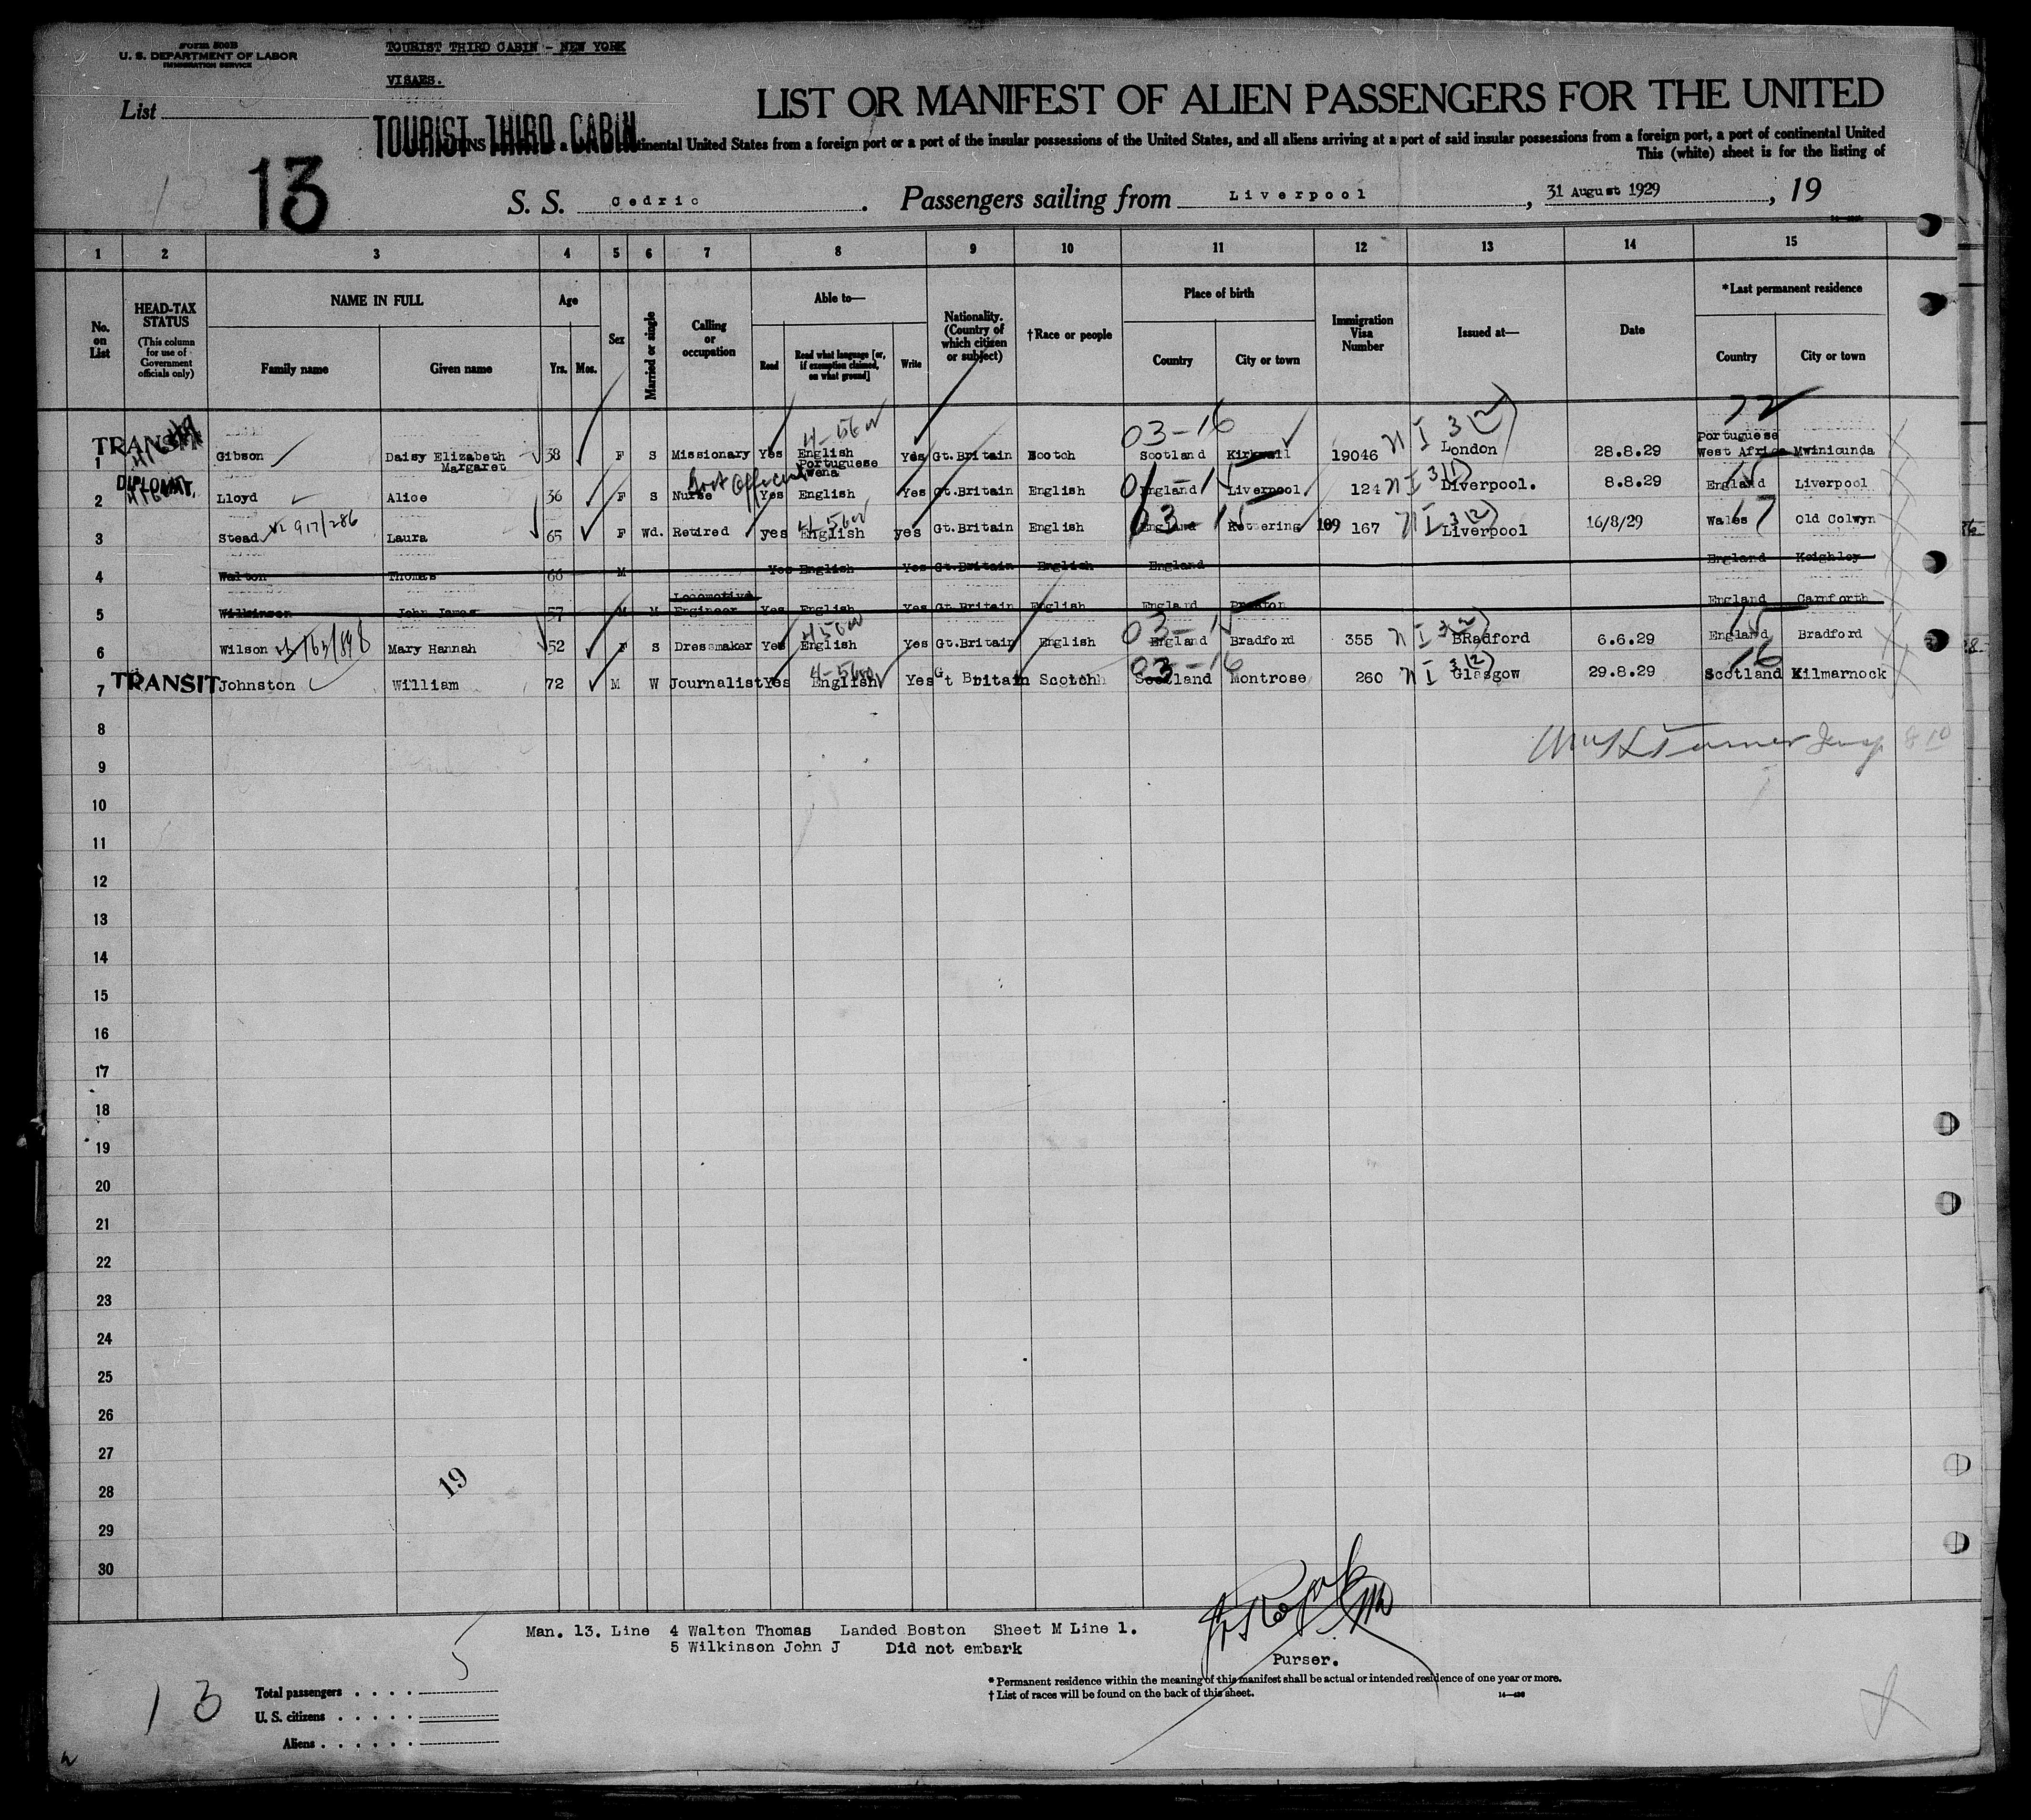 Form 500B
U. S. DEPARTMENT OF LABOR
IMMIGRATION SERVICE
TOURIST THIRD CABIN - NEW YORK
VISAES.
List
TOURIST THIRD CABIN
13
LIST OR MANIFEST OF ALIEN PASSENGERS FOR THE UNITED
tinental United States from a foreign port or a port of the insular possessions of the United States, and all aliens arriving at a port of said insular possessions from a foreign port, a port of continental United
This (white) sheet is for the listing of
S. S. Cedric . Passengers sailing from Liverpool , 31 August 1929 , 19
1 2 3 4 5 6 7 8 9 10 11 12 13 14 15
No. on List
HEAD-TAX STATUS (This column for use of Government officials only)
NAME IN FULL
Family name Given name
Age
Yrs. Mos.
Sex
Married or single
Calling or occupation
Able to—
Read Read what language [or, if exemption claimed, on what ground] Write
Nationality. (Country of which citizen or subject)
†Race or people
Place of birth
Country City or town
Immigration Visa Number
Issued at—
Date
*Last permanent residence
Country City or town
TRANSIT 03-16 72
1 Gibson Daisy Elizabeth Margaret 38 F S Missionary Yes English Portuguese Lwena Yes Gt.Britain Scotch Scotland Kirkwall 19046 NI 3(2) London 28.8.29 Portuguese West Africa Mwinicunda
DIPLOMAT. Govt Official 01-15 15
2 Lloyd Alice 36 F S Nurse Yes English Yes Gt.Britain English England Liverpool 124 NI 3(1) Liverpool. 8.8.29 England Liverpool
3 Stead 917/286 Laura 65 F Wd. Retired yes English yes Gt.Britain English England Kettering 109 167 NI 3(2) Liverpool 16/8/29 Wales 17 Old Colwyn
4 Walton Thomas 66 M Yes English Yes Gt.Britain English England England Keighley
5 Wilkinson John James 57 M M Locomotive Engineer Yes English Yes Gt.Britain English England Preston England Carnforth
03-15 15
6 Wilson Mary Hannah 52 F S Dressmaker Yes English Yes Gt.Britain English England Bradford 355 NI 3(2) BRadford 6.6.29 England Bradford
03-16 16
7 TRANSIT Johnston William 72 M W Journalist Yes English Yes Gt Britain Scotch Scotland Montrose 260 NI 3(2) Glasgow 29.8.29 Scotland Kilmarnock
8
9
10
11
12
13
14
15
16
17
18
19
20
21
22
23
24
25
26
27
28
29
30
19
Man. 13. Line 4 Walton Thomas Landed Boston Sheet M Line 1.
5 Wilkinson John J Did not embark
Purser.
* Permanent residence within the meaning of this manifest shall be actual or intended residence of one year or more.
† List of races will be found on the back of this sheet.
13
Total passengers . . . . 5
U. S. citizens . . . . .
Aliens . . . . . .